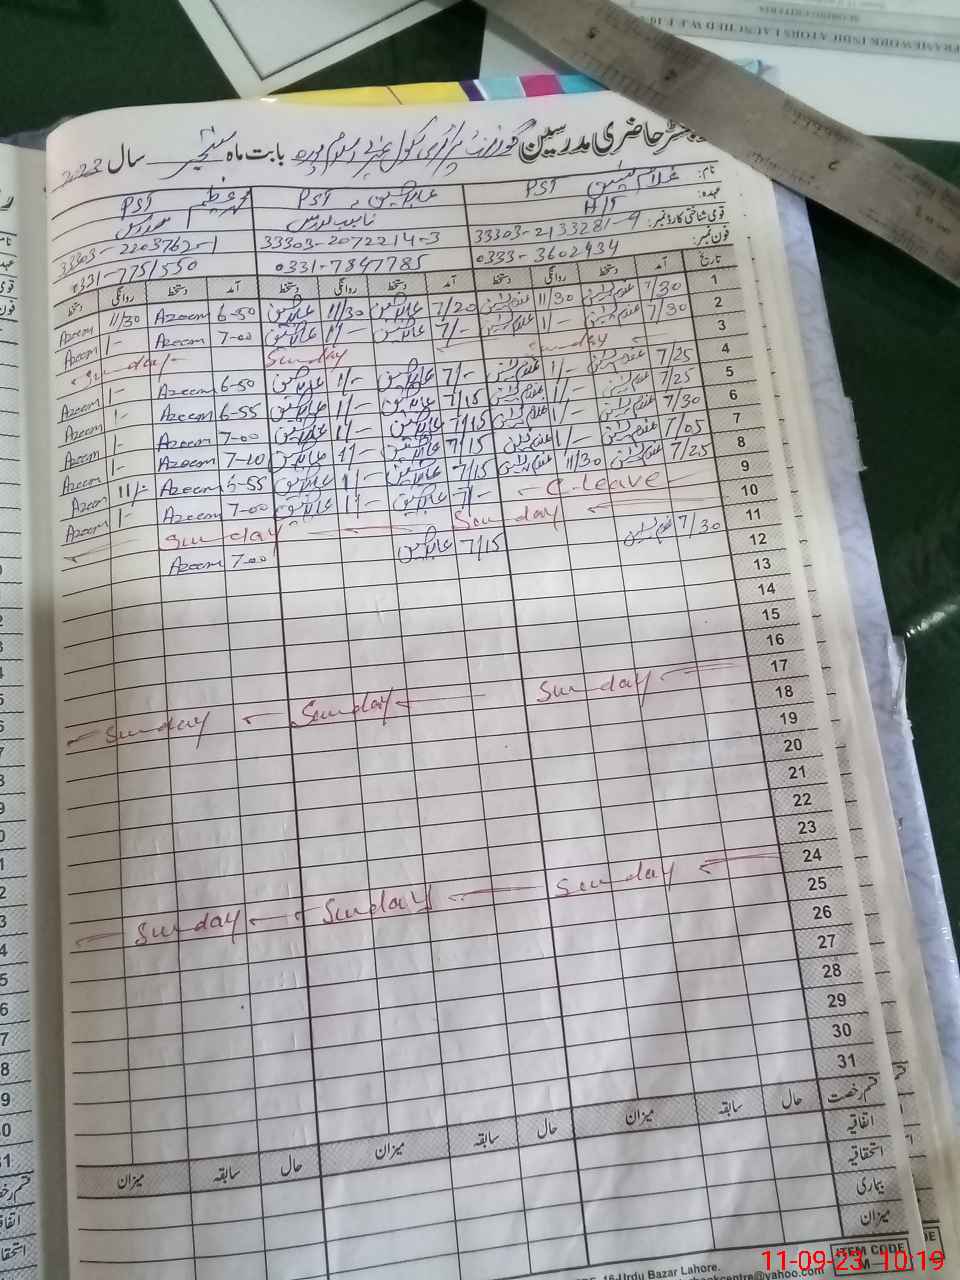 FRAMEWORK INDICATORS LAUNCHED W.E.F
SCORING CRITERIA
حاضری مدرسین گورنمنٹ پرائمری سکول بابت ماہ ستمبر سال 2023
نام: غلام یٰسین PST عابد حسین PST محمد عظیم PST
عہدہ: H/T نائب مدرس مدرس
قومی شناختی کارڈ نمبر: 33303-2133281-9 33303-2072214-3 33303-2203762-1
فون نمبر: 0333-3602934 0331-7847785 0331-7751550
تاریخ آمد دستخط روانگی دستخط آمد دستخط روانگی دستخط آمد دستخط روانگی دستخط
1 7/30 غلام یٰسین 11/30 غلام یٰسین 7/20 عابد حسین 11/30 عابد حسین 6-50 Azeem 11/30 Azeem
2 7/30 غلام یٰسین 11/- غلام یٰسین 7/- عابد حسین 11/- عابد حسین 7-00 Azeem 1/- Azeem
3 Sunday Sunday Sunday
4 7/25 غلام یٰسین 1/- غلام یٰسین 7/- عابد حسین 1/- عابد حسین 6-50 Azeem 1/- Azeem
5 7/25 غلام یٰسین 11/- غلام یٰسین 7/15 عابد حسین 1/- عابد حسین 6-55 Azeem 1/- Azeem
6 7/30 غلام یٰسین 1/- غلام یٰسین 7/15 عابد حسین 1/- عابد حسین 7-00 Azeem 1/- Azeem
7 7/05 غلام یٰسین 1/- غلام یٰسین 7/15 عابد حسین 1/- عابد حسین 7-10 Azeem 1/- Azeem
8 7/25 غلام یٰسین 11/30 غلام یٰسین 7/15 عابد حسین 1/- عابد حسین 6-55 Azeem 11/- Azeem
9 C-Leave 7/- عابد حسین 11/- عابد حسین 7-00 Azeem 1/- Azeem
10 Sunday Sunday
11 7/30 غلام یٰسین 7/15 عابد حسین 7-00 Azeem
12
13
14
15
16
17 Sunday Sunday Sunday
18
19
20
21
22
23
24 Sunday Sunday Sunday
25
26
27
28
29
30
31
قسم رخصت حال سابقہ میزان حال سابقہ میزان حال سابقہ میزان
اتفاقیہ
استحقاقیہ
بیماری
میزان
16-Urdu Bazar Lahore.
bookcentre@yahoo.com
ITEM CODE
M
11-09-23 10:19